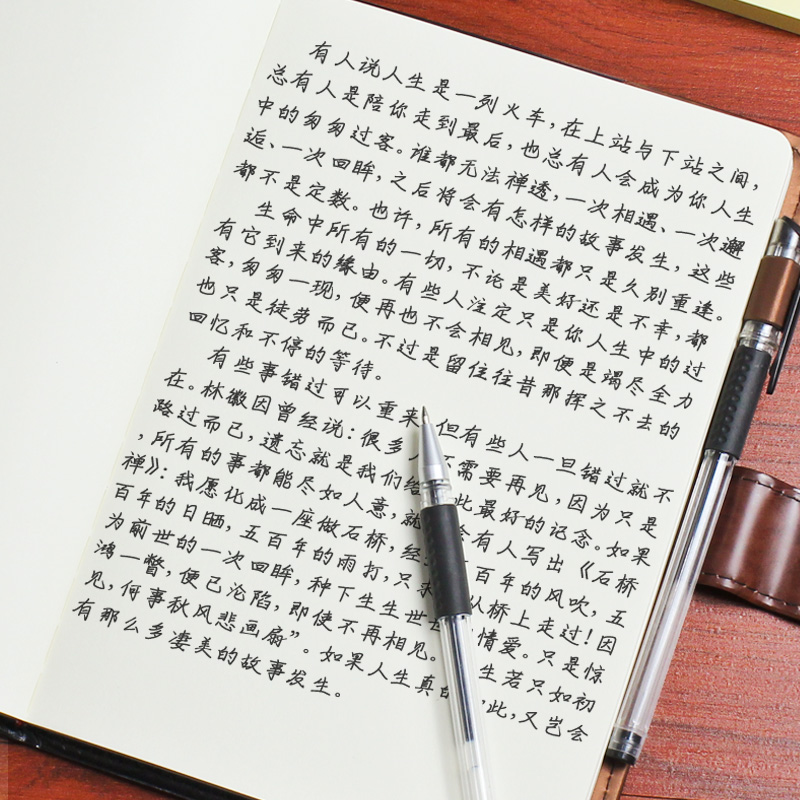 有人说人生是一列火车,在上站与下站之间,
总有人是陪你走到最后,也总有人会成为你人生
中的匆匆过客。谁都无法禅透,一次相遇、一次邂
逅、一次回眸,之后将会有怎样的故事发生,这些
都不是定数。也许,所有的相遇都只是久别重逢。
生命中所有的一切,不论是美好还是不幸,都
有它到来的缘由。有些人注定只是你人生中的过
客,匆匆一现,便再也不会相见,即便是竭尽全力
也只是徒劳而已。不过是留住往昔那挥之不去的
回忆和不停的等待。
有些事错过可以重来 但有些人一旦错过就不
在。林徽因曾经说:很多人不需要再见,因为只是
路过而已,遗忘就是我们给 此最好的记念。如果
,所有的事都能尽如人意,就 会有人写出《石桥
禅》:我愿化成一座做石桥,经 百年的风吹,五
百年的日晒,五百年的雨打,只求 从桥上走过!因
为前世的一次回眸,种下生生世世 情爱。只是惊
鸿一瞥,便已沦陷,即使不再相见。 生若只如初
见,何事秋风悲画扇”。如果人生真的 此,又岂会
有那么多凄美的故事发生。